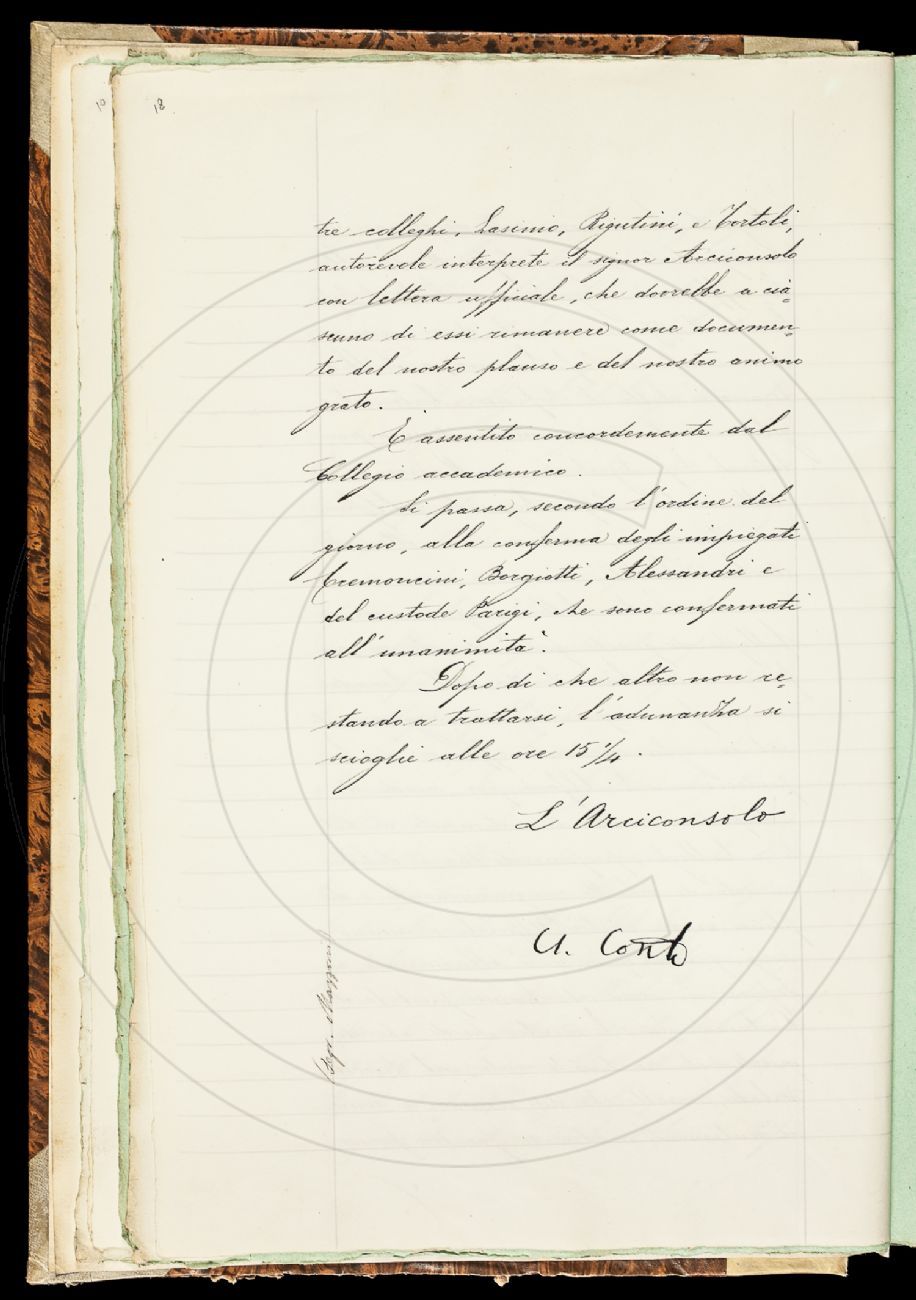 10
18
tre colleghi, Lasinio, Rigutini, e Tortoli,
autorevole interprete il signor Arciconsolo
con lettera ufficiale, che dovrebbe a cia=
scuno di essi rimanere come documen=
to del nostro plauso e del nostro animo
grato.
È assentito concordemente dal
Collegio accademico.
Si passa, secondo l'ordine del
giorno, alla conferma degli impiegati
Cremoncini, Borgiotti, Alessandri e
del custode Parigi, che sono confermati
all'unanimità.
Dopo di che altro non re=
stando a trattarsi, l'adunanza si
scioglie alle ore 15 1/4.
L'Arciconsolo
A. Conti
(Segr. Mazzoni)